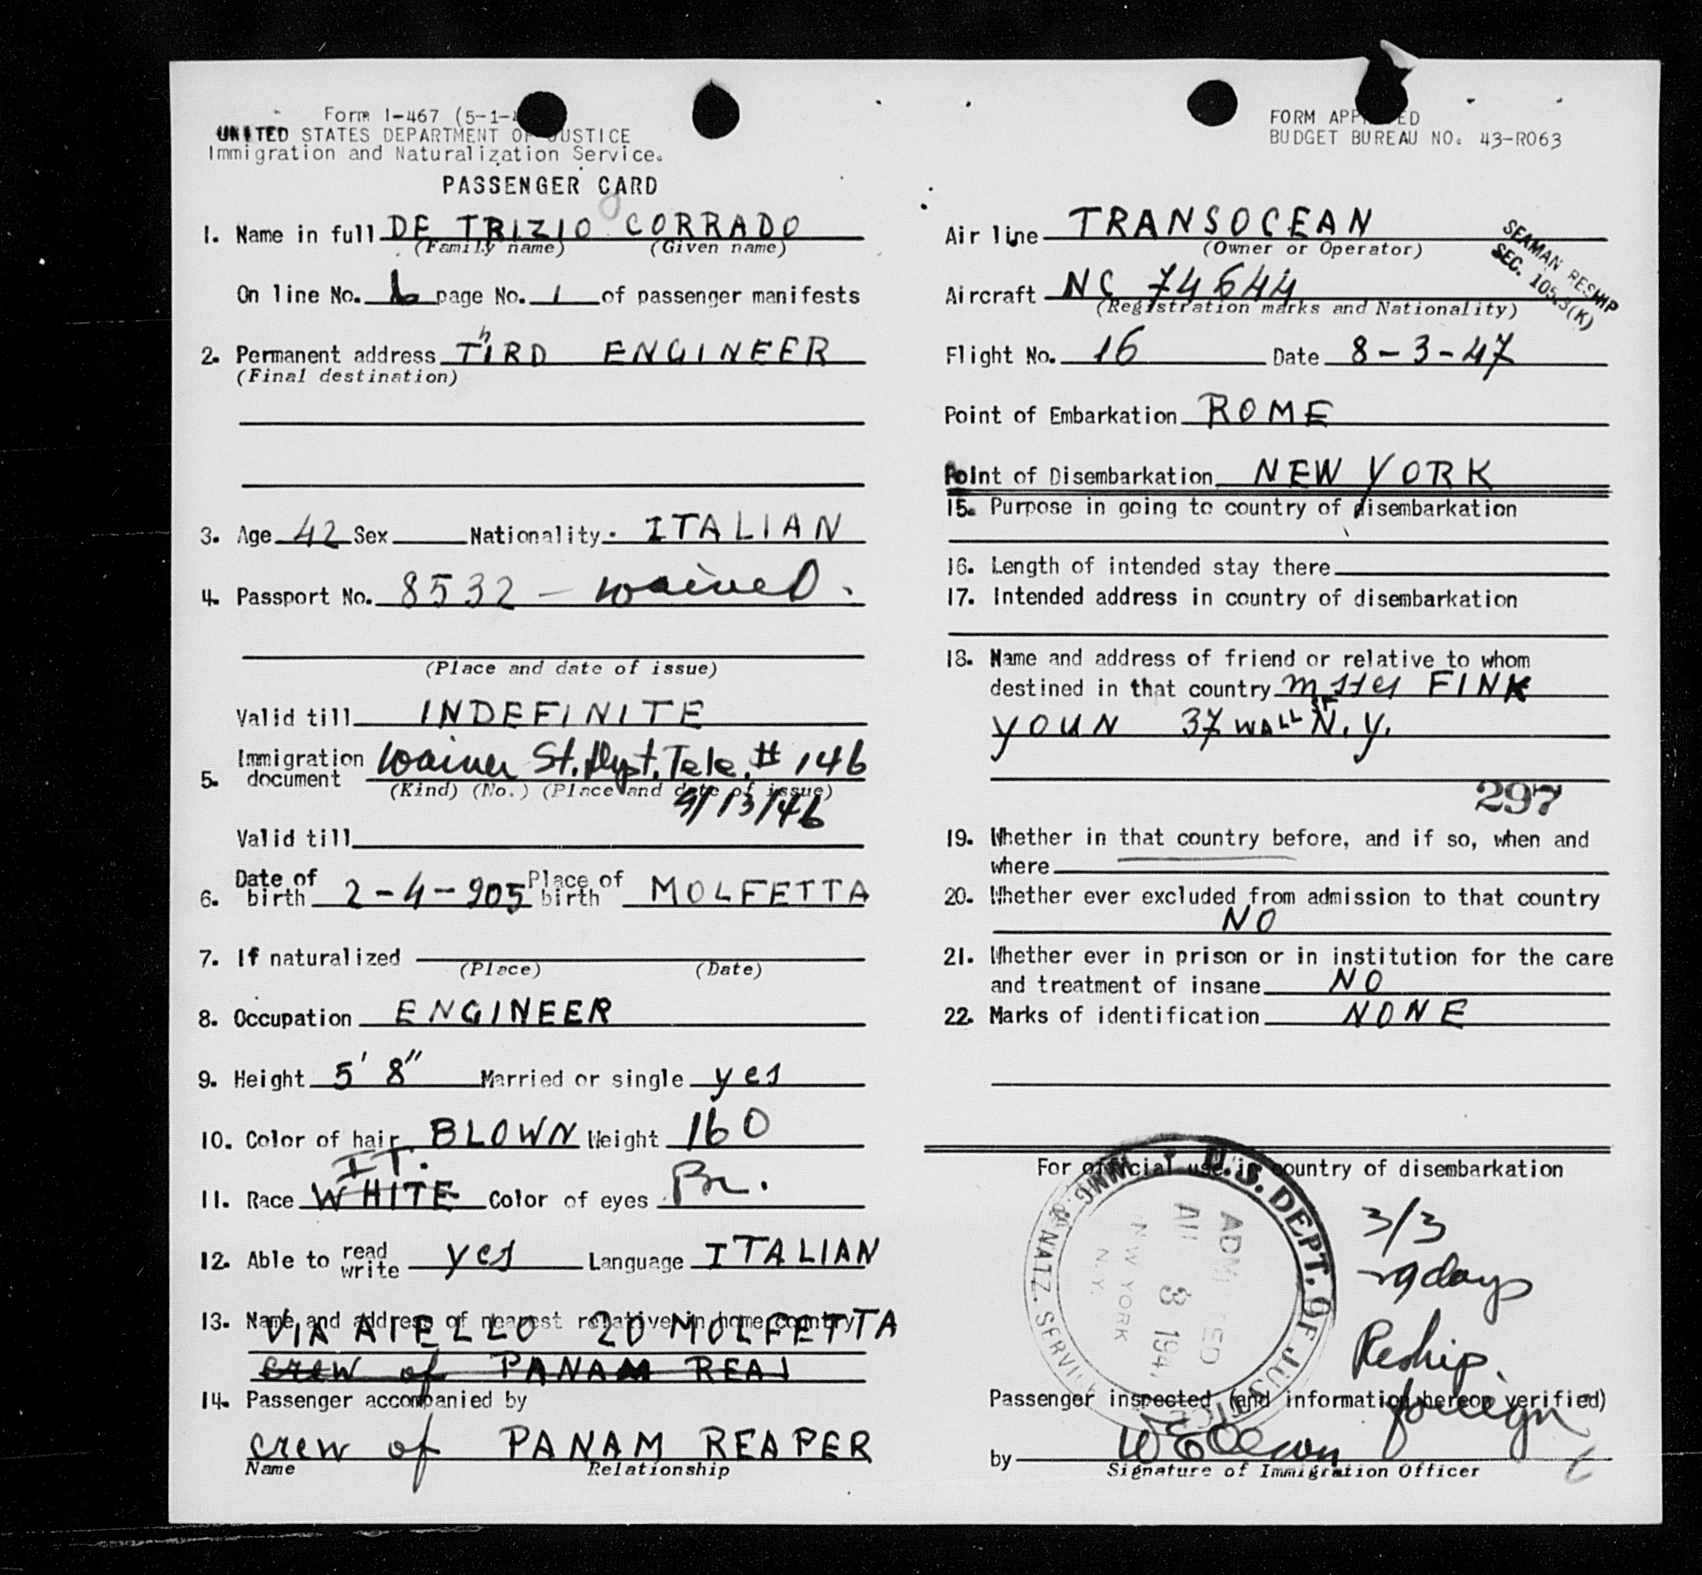 Form I-467 (5-1-
UNITED STATES DEPARTMENT OF JUSTICE
Immigration and Naturalization Service.
PASSENGER CARD
1. Name in full DE TRIZIO CORRADO
(Family name) (Given name)
On line No. 6 page No. 1 of passenger manifests
2. Permanent address THIRD ENGINEER
(Final destination)
3. Age 42 Sex Nationality ITALIAN
4. Passport No. 8532 - waived.
(Place and date of issue)
Valid till INDEFINITE
5. Immigration document Waiver St. Dept. Tele. # 146
(Kind) (No.) (Place and date of issue)
9/13/46
Valid till
6. Date of birth 2-4-905 Place of birth MOLFETTA
7. If naturalized
(Place) (Date)
8. Occupation ENGINEER
9. Height 5' 8" Married or single yes
10. Color of hair BLOWN Weight 160
IT.
11. Race WHITE Color of eyes Br.
12. Able to read write yes Language ITALIAN
13. Name and address of nearest relative in home country
VIA AIELLO 20 MOLFETTA
crew of PANAM REA
14. Passenger accompanied by
crew of PANAM REAPER
Name Relationship
FORM APPROVED
BUDGET BUREAU NO. 43-R063
Air line TRANSOCEAN
(Owner or Operator)
SEAMAN RESHIP
SEC. 105.3(K)
Aircraft NC 74644
(Registration marks and Nationality)
Flight No. 16 Date 8-3-47
Point of Embarkation ROME
Point of Disembarkation NEW YORK
15. Purpose in going to country of disembarkation
16. Length of intended stay there
17. Intended address in country of disembarkation
18. Name and address of friend or relative to whom
destined in that country FINK
YOUN 37 WALL ST N.Y.
297
19. Whether in that country before, and if so, when and
where
20. Whether ever excluded from admission to that country
NO
21. Whether ever in prison or in institution for the care
and treatment of insane NO
22. Marks of identification NONE
For official use in country of disembarkation
U.S. DEPT. OF JUSTICE IMMIG. & NATZ. SERVICE
ADMITTED
3 194
NEW YORK
N.Y.
3/3
29 days
Reship
foreign
Passenger inspected (and information hereon verified)
by
Signature of Immigration Officer